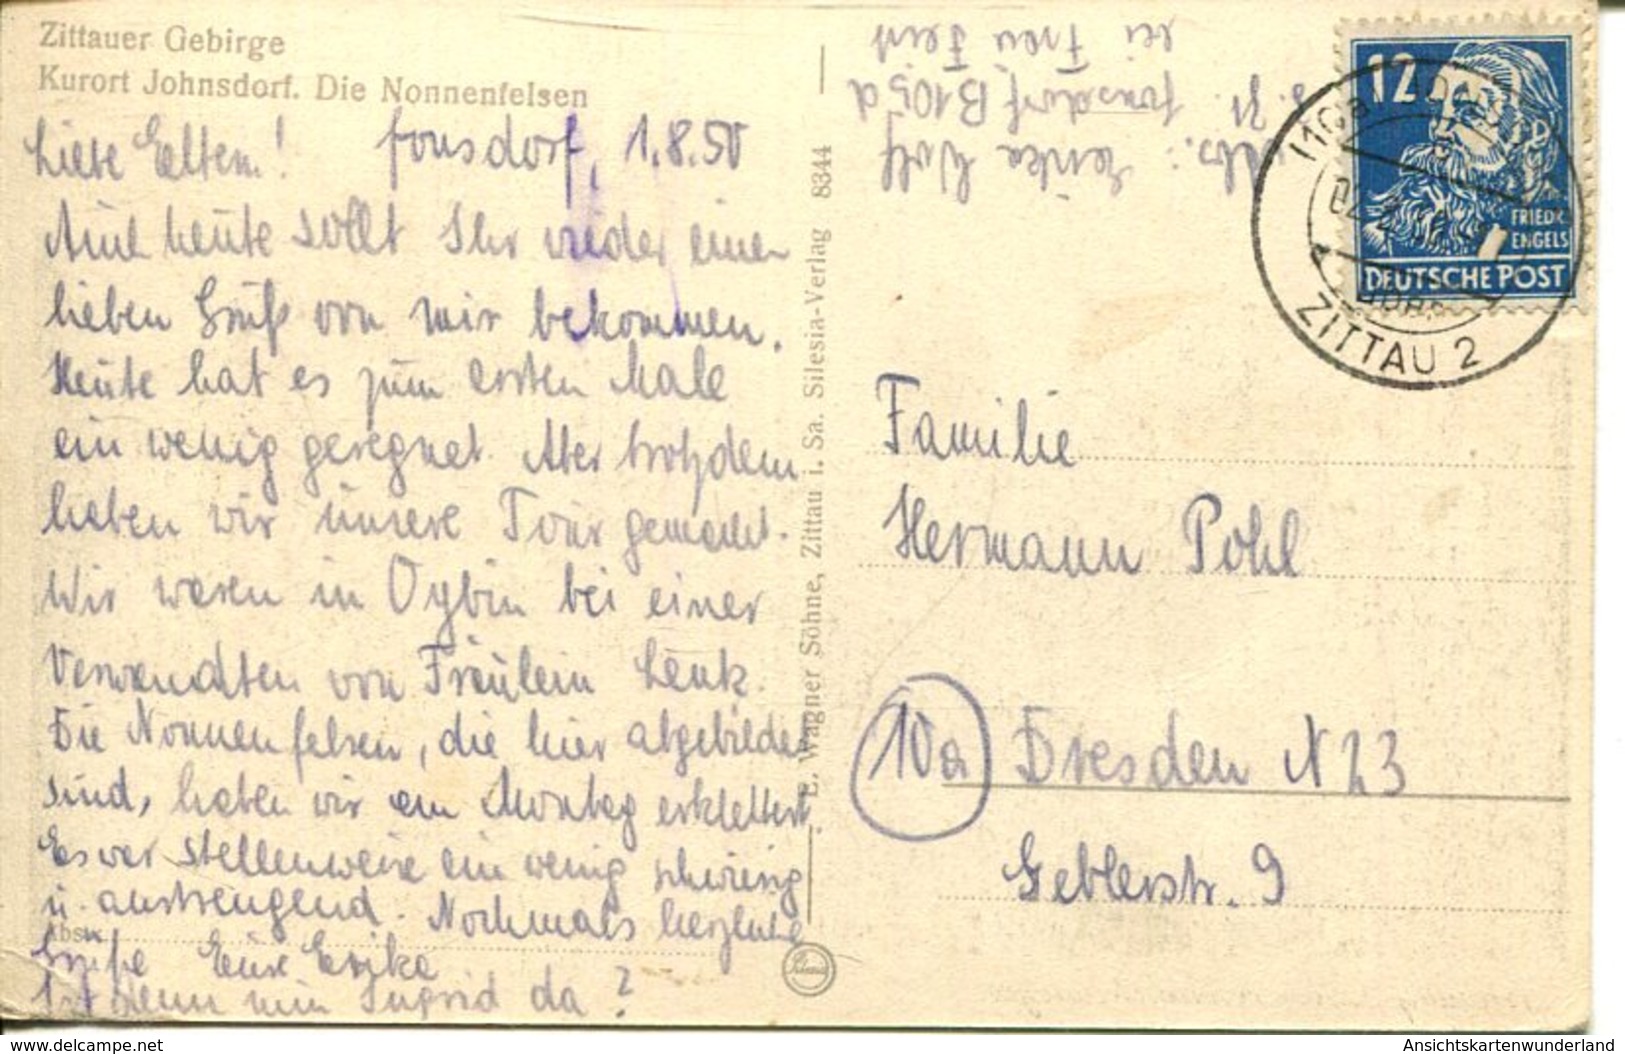 Zittauer Gebirge
Kurort Johnsdorf. Die Nonnenfelsen
Liebe Eltern! Jonsdorf, 1.8.50
Auch heute sollt Ihr wieder einen
lieben Gruß von mir bekommen.
Heute hat es zum ersten Male
ein wenig geregnet. Aber trotzdem
haben wir unsere Tour gemacht.
Wir waren in Oybin bei einer
Verwandten von Fräulein Lenk.
Die Nonnenfelsen, die hier abgebildet
sind, haben wir am Montag erklettert.
Es war stellenweise ein wenig schwierig
u. anstrengend. Nochmals herzliche
Absr.
Grüße Eure Erika
Ist denn nun Ingrid da?
E. Wagner Söhne, Zittau i. Sa. Silesia-Verlag 8344
Abs.: Erika Wolf
z. Zt. Jonsdorf B 105 d
bei Frau
12
FRIEDR.
ENGELS
DEUTSCHE POST
ZITTAU 2
Familie
Hermann Pohl
10a Dresden N 23
Geblerstr. 9
www.delcampe.net
Ansichtskartenwunderland